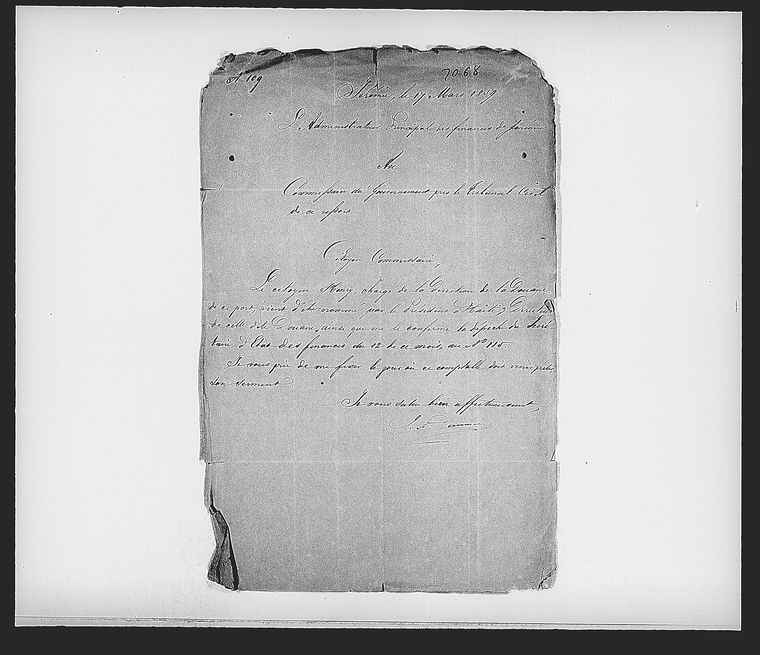 7068
N° 109
Jérémie, le 17 Mars 1859
L'Administrateur Principal des finances de Jérémie
Au
Commissaire du Gouvernement près le Tribunal Civil
de ce ressort
Citoyen Commissaire,
Le citoyen chargé de la Direction de la Douane
de ce port, vient d'être nommé par le Président d'Haïti, Directeur
de celle dite Douane, ainsi que me le confirme la dépêche du Secré
taire d'Etat des finances du 12 de ce mois, au N° 115.
Je vous prie de me fixer le jour où ce comptable doit venir prêter
son serment
Je vous salue bien affectueusement,